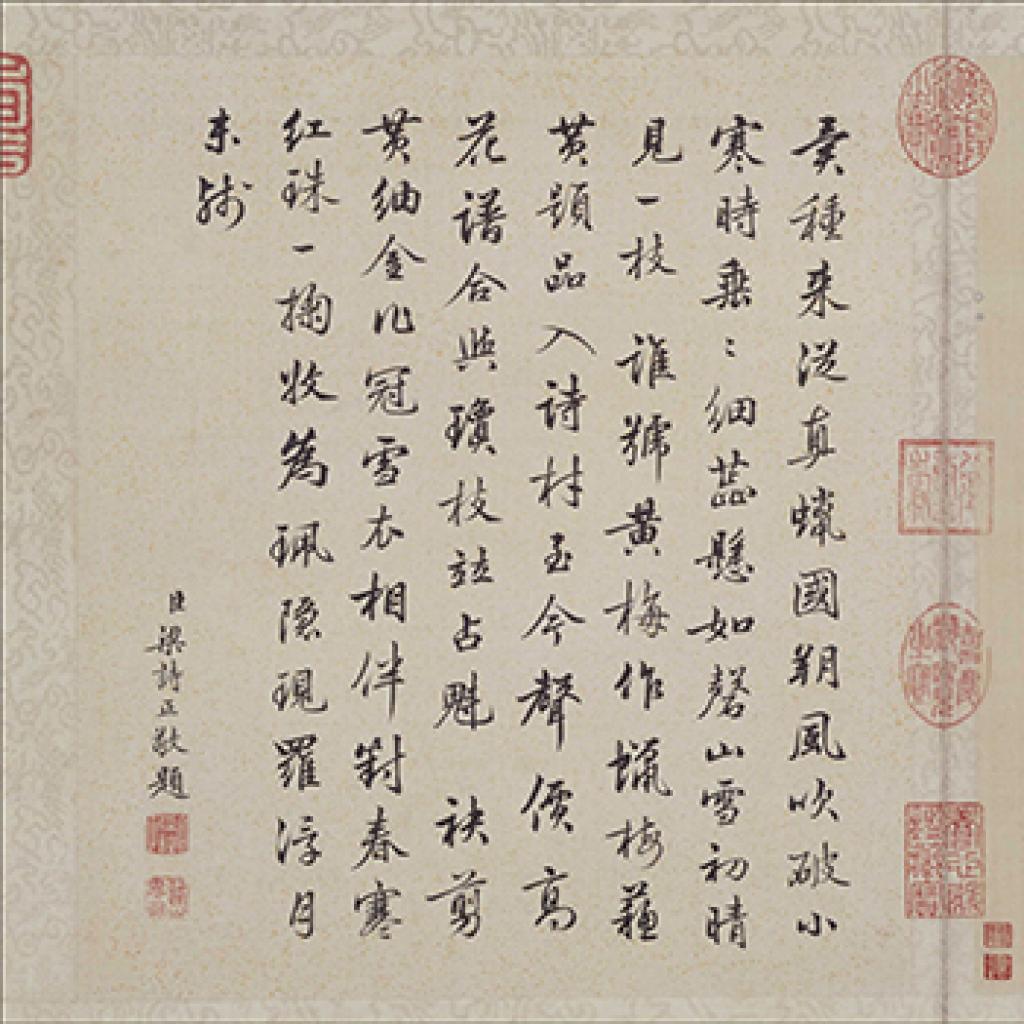 異種来從真蠟國朔風吹破小
寒時垂〻細蕊懸如磬山雪初晴
見一枝 誰號黃梅作蠟梅蘇
黃題品入詩材至今聲價高
花譜合與瓊枝並占魁 袂剪
黃紬金冠雪衣相伴對春寒
紅珠一掬收為珮隱現羅浮月
未殘
臣梁詩正敬題